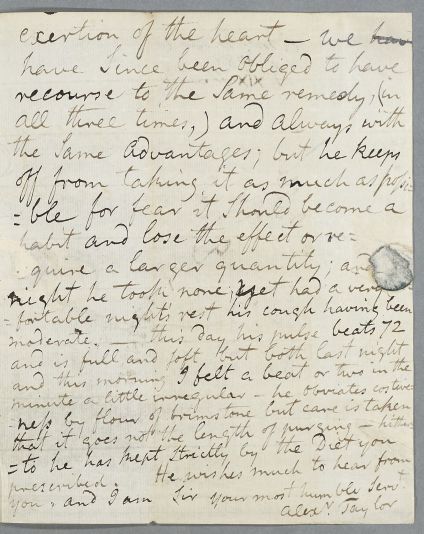 exertion of the heart — we hav
have since been obliged to have
recourse to the same remedy, (in
all three times,) and always with
the same advantages; but he keeps
off from taking it as much as possi=
=ble for fear it should become a
habit and lose the effect or re=
quire a larger quantity; and
night he took none yet had a very
=fortable night's rest his cough having been
moderate. — this day his pulse beats 72
and is full and soft but both last night
and this morning I felt a beat or two in the
minute a little irregular — he obviates costive
=ness by flour of brimstone but care is taken
that it goes not the length of purging — hither
=to he has kept strictly by the Diet you
prescribed. He wishes much to hear from
you, and I am Sir your most humble Servt.
Alexr. Taylor